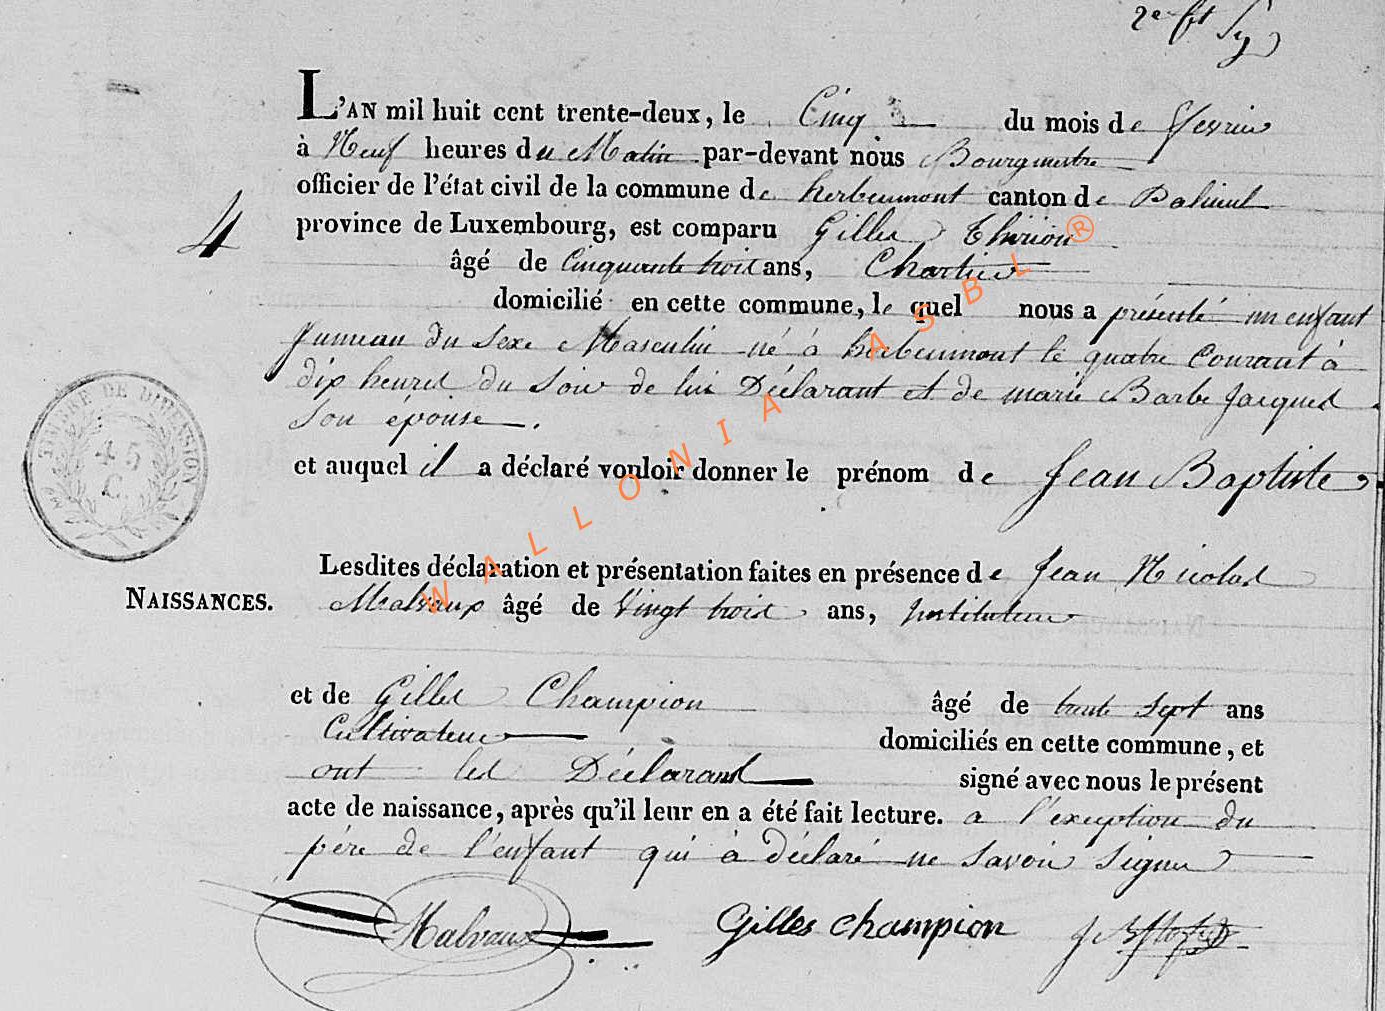 2e ft
L'AN mil huit cent trente-deux, le Cinq du mois de fevrier
à Neuf heures du Matin par-devant nous Bourgmestre
officier de l'état civil de la commune de herbeumont canton de Paliseul
4
province de Luxembourg, est comparu Gilles Thirion
âgé de Cinquante trois ans, Chartier
domicilié en cette commune, le quel nous a présenté un enfant
Jumeau du sexe Masculin né à herbeumont le quatre Courant à
dix heures du Soir de lui Déclarant et de marie Barbe Jacques
Son épouse.
et auquel il a déclaré vouloir donner le prénom de Jean Baptiste
TIMBRE DE DIMENSION
45
C.
Lesdites déclaration et présentation faites en présence de Jean Nicolas
NAISSANCES. Malvaux âgé de Vingt trois ans, Instituteur
et de Gilles Champion âgé de trente Sept ans
Cultivateur domiciliés en cette commune, et
ont les Déclarans signé avec nous le présent
acte de naissance, après qu'il leur en a été fait lecture. a l'exeption du
père de l'enfant qui à déclaré ne savoir signer
Malvaux Gilles champion
WALLONIA ASBL®